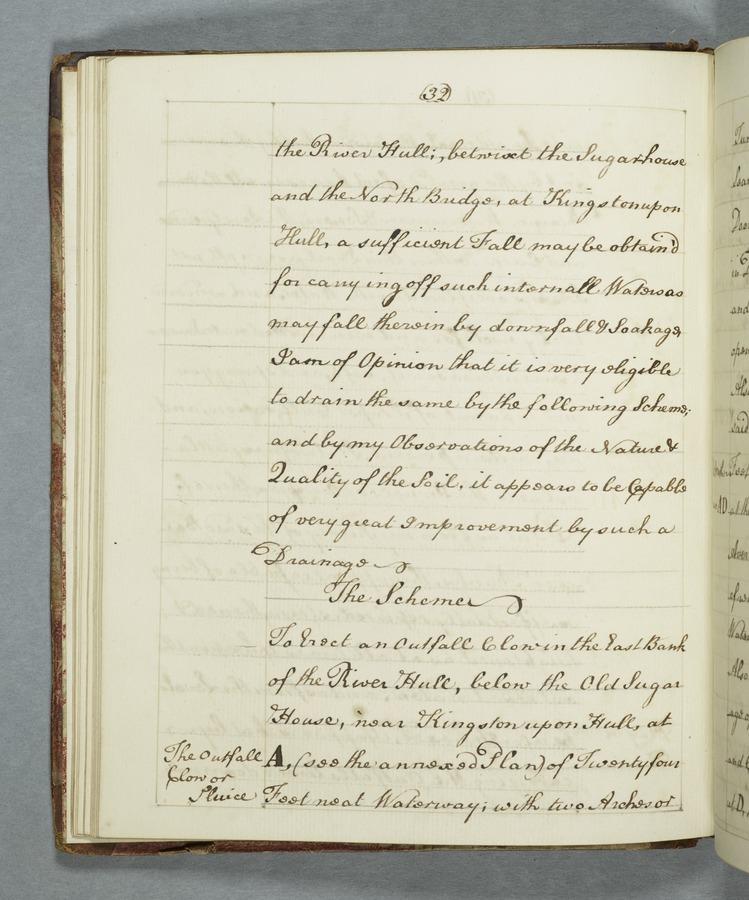 32
the River Hull; betwixt the Sugarhouse
and the North Bridge, at Kingston upon
Hull, a sufficient Fall may be obtain'd
for carrying off such internall Waters as
may fall therein by downfall & Soakage,
I am of Opinion that it is very eligible
to drain the same by the following Scheme;
and by my Observations of the Nature &
Quality of the Soil, it appears to be Capable
of very great Improvement by such a
Drainage
The Scheme
To Erect an Outfall Clow in the East Bank
of the River Hull, below the Old Sugar
House, near Kingston upon Hull, at
The Outfall
Clow or
Sluice
A, (see the annexed Plan) of Twenty four
Feet neat Waterway; with two Arches or